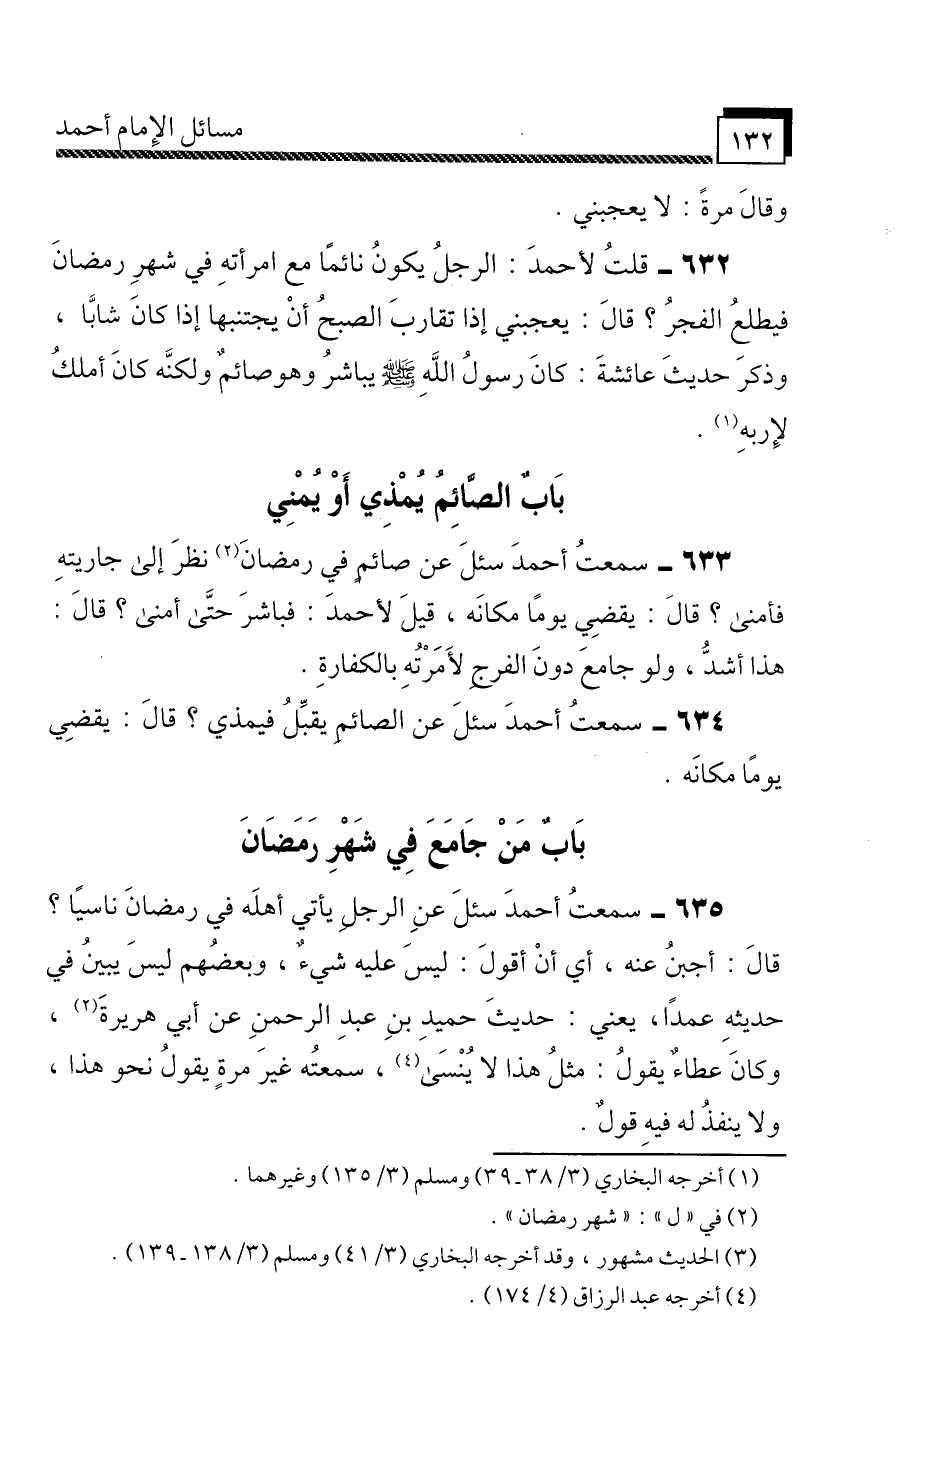 مسائل الإمام أحمد
١٣٢
وقالَ مرةً : لا يعجبني .
٦٣٢ ـ قلتُ لأحمدَ : الرجلُ يكونُ نائمًا مع امرأتهِ في شهرِ رمضانَ
فيطلعُ الفجرُ ؟ قالَ : يعجبني إذا تقاربَ الصبحُ أنْ يجتنبها إذا كانَ شابًّا ،
وذكرَ حديثَ عائشةَ : كانَ رسولُ اللَّهِ ﷺ يباشرُ وهو صائمٌ ولكنَّه كانَ أملكُ
لإربهِ(١) .
بَابٌ الصَّائِمُ يُمْذِي أَوْ يُمْنِي
٦٣٣ ـ سمعتُ أحمدَ سئلَ عن صائمٍ في رمضانَ(٢) نظرَ إلىٰ جاريتهِ
فأمنىٰ ؟ قالَ : يقضي يومًا مكانَه ، قيلَ لأحمدَ : فباشرَ حتَّىٰ أمنىٰ ؟ قالَ :
هذا أشدُّ ، ولو جامعَ دونَ الفرجِ لأَمَرْتُه بالكفارةِ .
٦٣٤ ـ سمعتُ أحمدَ سئلَ عن الصائمِ يقبِّلُ فيمذي ؟ قالَ : يقضِي
يومًا مكانَه .
بَابٌ مَنْ جَامَعَ فِي شَهْرِ رَمَضَانَ
٦٣٥ ـ سمعتُ أحمدَ سئلَ عنِ الرجلِ يأتي أهلَه في رمضانَ ناسيًا ؟
قالَ : أجبنُ عنه ، أي أنْ أقولَ : ليسَ عليه شيءٌ ، وبعضُهم ليسَ يبينُ في
حديثهِ عمداً ، يعني : حديثَ حميدِ بنِ عبدِ الرحمنِ عن أبي هريرةَ(٢) ،
وكانَ عطاءٌ يقولُ : مثلُ هذا لا يُنْسَىٰ(٤) ، سمعتُه غيرَ مرةٍ يقولُ نحو هذا ،
ولا ينفذُ له فيهِ قولٌ .
(١) أخرجه البخاري (٣/ ٣٨ـ٣٩) ومسلم (٣/ ١٣٥) وغيرهما .
(٢) في «ل» : «شهر رمضان» .
(٣) الحديث مشهور ، وقد أخرجه البخاري (٣/ ٤١) ومسلم (٣/ ١٣٨ـ١٣٩) .
(٤) أخرجه عبد الرزاق (٤/ ١٧٤) .